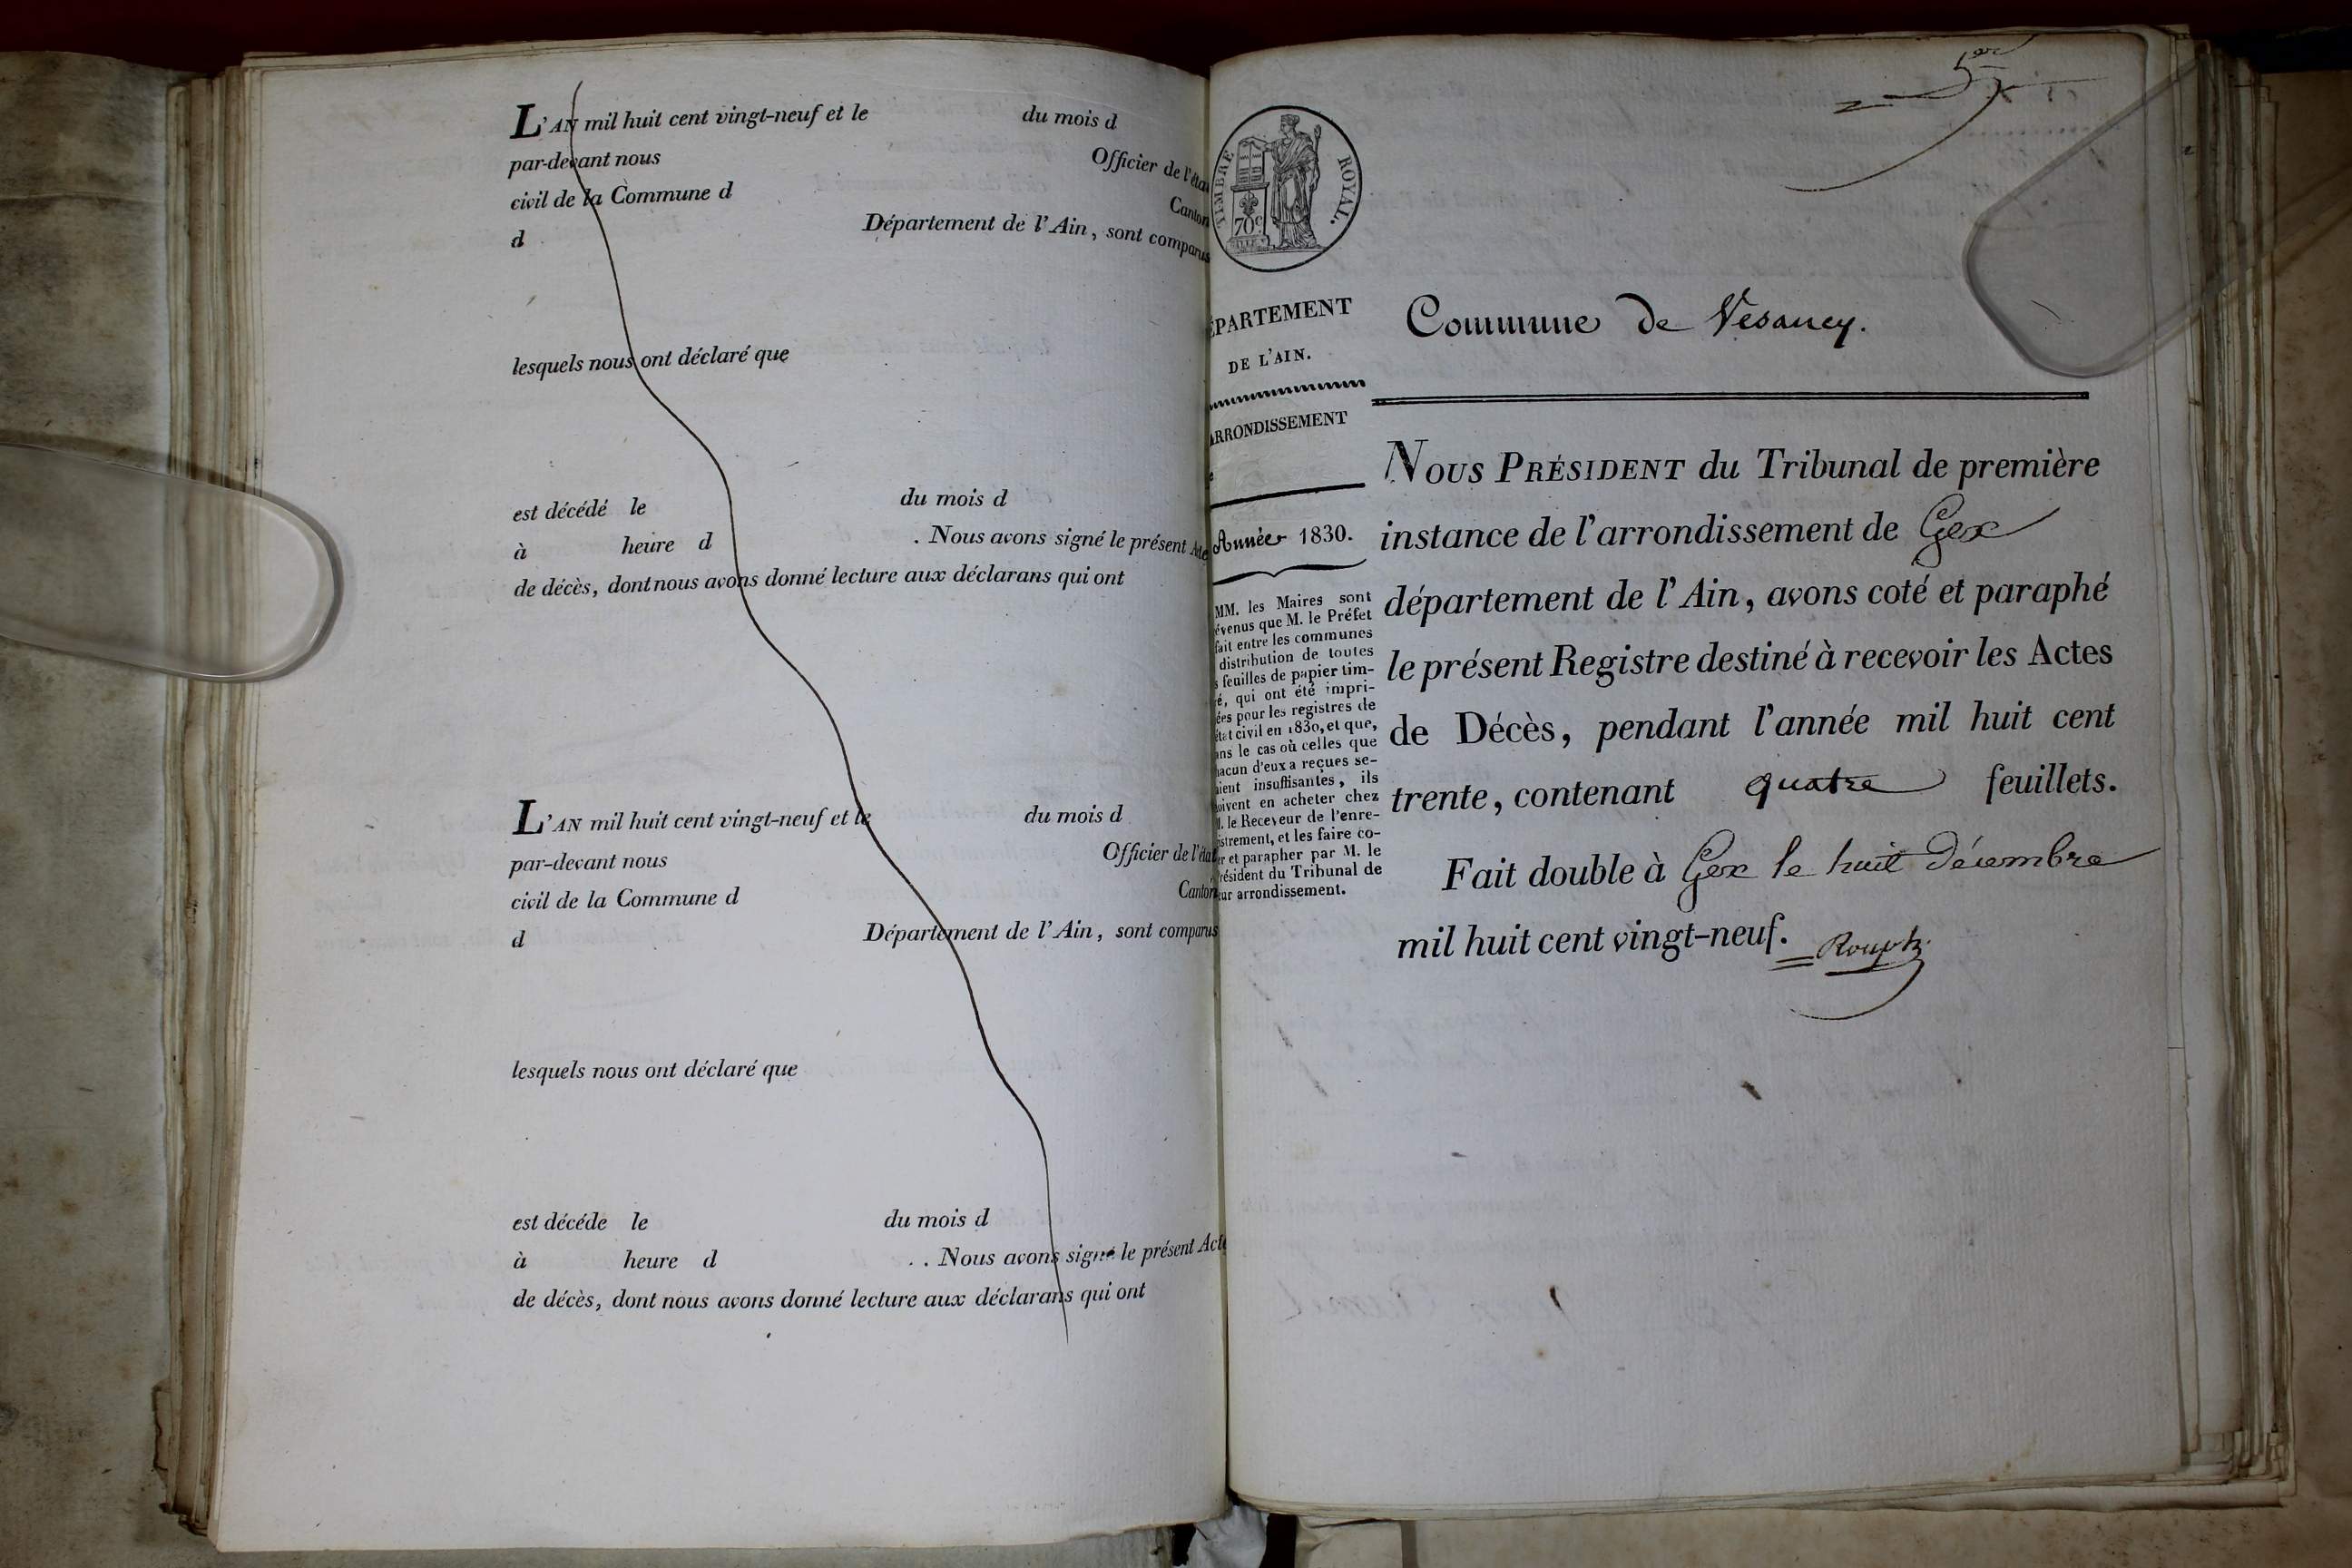 L'AN mil huit cent vingt-neuf et le du mois d
par-devant nous Officier de l'état
civil de la Commune d Canton
d Département de l'Ain, sont comparus
lesquels nous ont déclaré que
est décédé le du mois d
à heure d . Nous avons signé le présent Acte
de décès, dont nous avons donné lecture aux déclarans qui ont
L'AN mil huit cent vingt-neuf et le du mois d
par-devant nous Officier de l'état
civil de la Commune d Canton
d Département de l'Ain, sont comparus
lesquels nous ont déclaré que
est décéde le du mois d
à heure d . . Nous avons signé le présent Acte
de décès, dont nous avons donné lecture aux déclarans qui ont
TIMBRE ROYAL.
70c
ÉPARTEMENT
DE L'AIN.
ARRONDISSEMENT
Année 1830.
MM. les Maires sont
évenus que M. le Préfet
fait entre les communes
distribution de toutes
s feuilles de papier tim-
ré, qui ont été impri-
ées pour les registres de
état civil en 1830, et que,
ans le cas où celles que
hacun d'eux a reçues se-
aient insuffisantes, ils
oivent en acheter chez
M. le Receveur de l'enre-
istrement, et les faire co-
er et parapher par M. le
résident du Tribunal de
eur arrondissement.
Commune de Vesancy.
NOUS PRÉSIDENT du Tribunal de première
instance de l'arrondissement de Gex
département de l'Ain, avons coté et paraphé
le présent Registre destiné à recevoir les Actes
de Décès, pendant l'année mil huit cent
trente, contenant quatre feuillets.
Fait double à Gex le huit décembre
mil huit cent vingt-neuf.